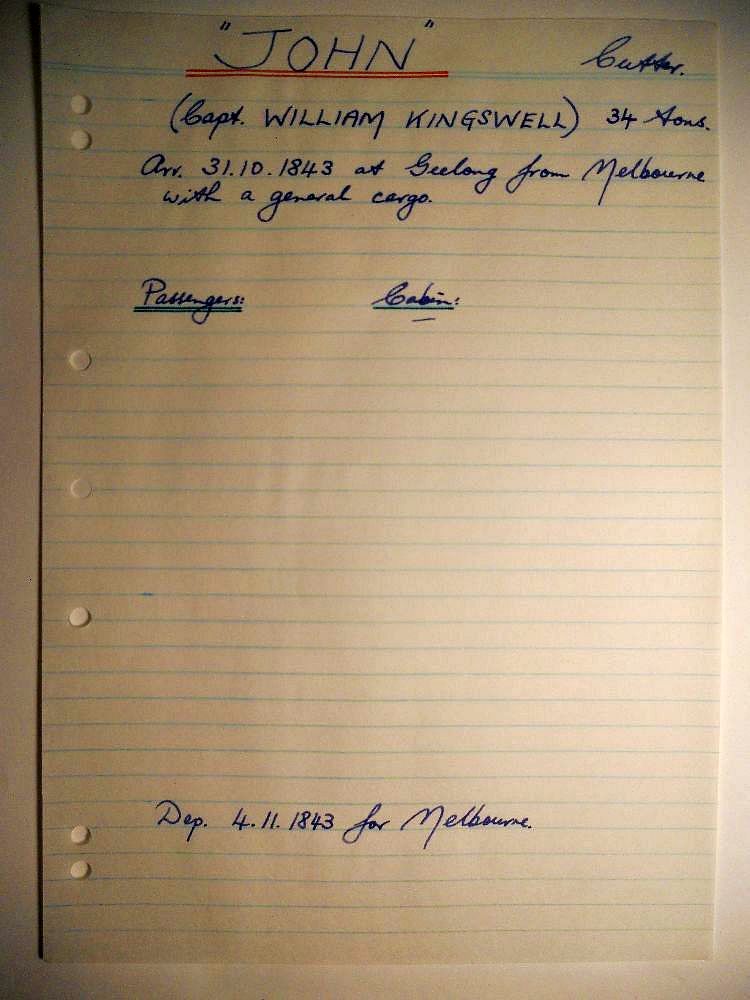 "JOHN" Cutter.
(Capt. WILLIAM KINGSWELL) 34 tons.
Arr. 31.10.1843 at Geelong from Melbourne
with a general cargo.
Passengers: Cabin:
—
Dep. 4.11.1843 for Melbourne.